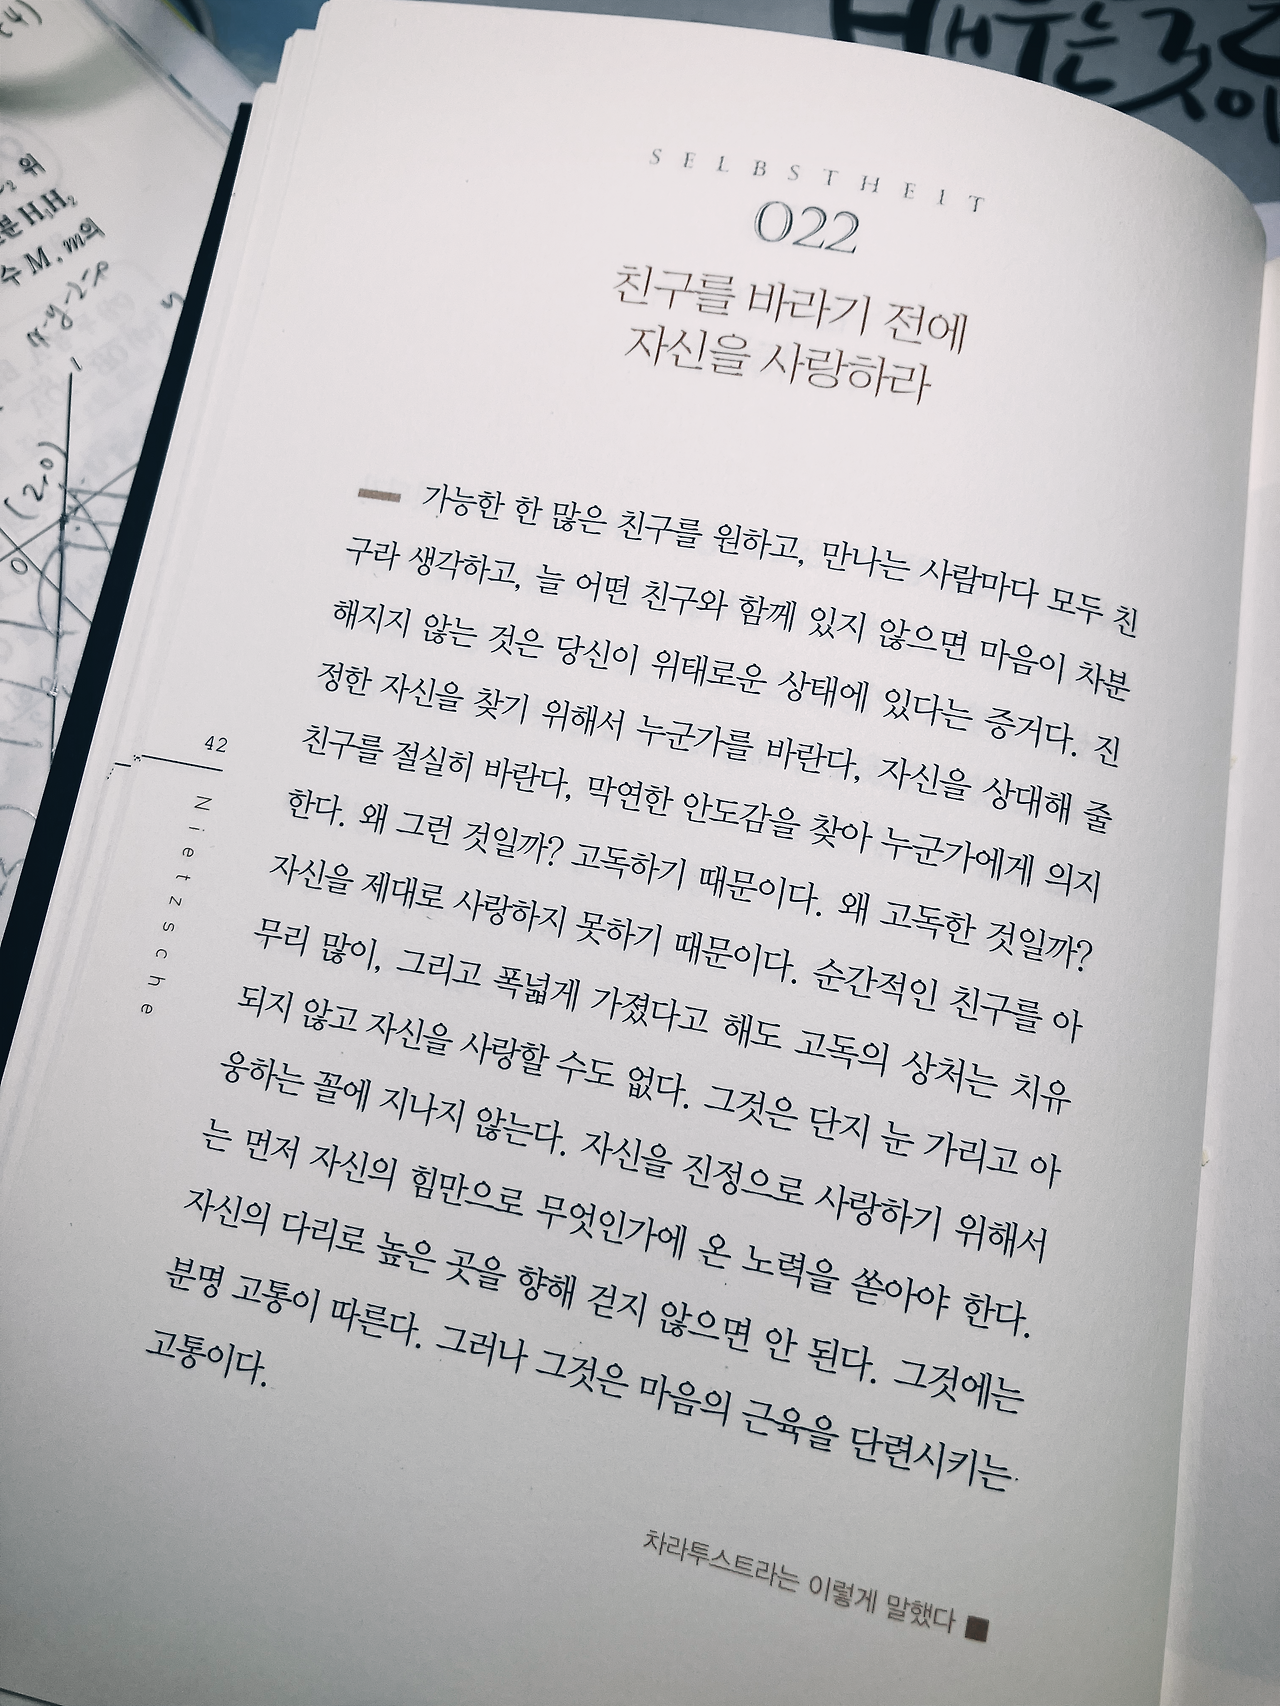 SELBSTHEIT
022
친구를 바라기 전에
자신을 사랑하라
가능한 한 많은 친구를 원하고, 만나는 사람마다 모두 친
구라 생각하고, 늘 어떤 친구와 함께 있지 않으면 마음이 차분
해지지 않는 것은 당신이 위태로운 상태에 있다는 증거다. 진
정한 자신을 찾기 위해서 누군가를 바란다, 자신을 상대해 줄
친구를 절실히 바란다, 막연한 안도감을 찾아 누군가에게 의지
한다. 왜 그런 것일까? 고독하기 때문이다. 왜 고독한 것일까?
자신을 제대로 사랑하지 못하기 때문이다. 순간적인 친구를 아
무리 많이, 그리고 폭넓게 가졌다고 해도 고독의 상처는 치유
되지 않고 자신을 사랑할 수도 없다. 그것은 단지 눈 가리고 아
웅하는 꼴에 지나지 않는다. 자신을 진정으로 사랑하기 위해서
는 먼저 자신의 힘만으로 무엇인가에 온 노력을 쏟아야 한다.
자신의 다리로 높은 곳을 향해 걷지 않으면 안 된다. 그것에는
분명 고통이 따른다. 그러나 그것은 마음의 근육을 단련시키는
고통이다.
차라투스트라는 이렇게 말했다
42
Nietzsche
위
분 H₁H₂
수 M, m의
(2,0)
0
배우는 것